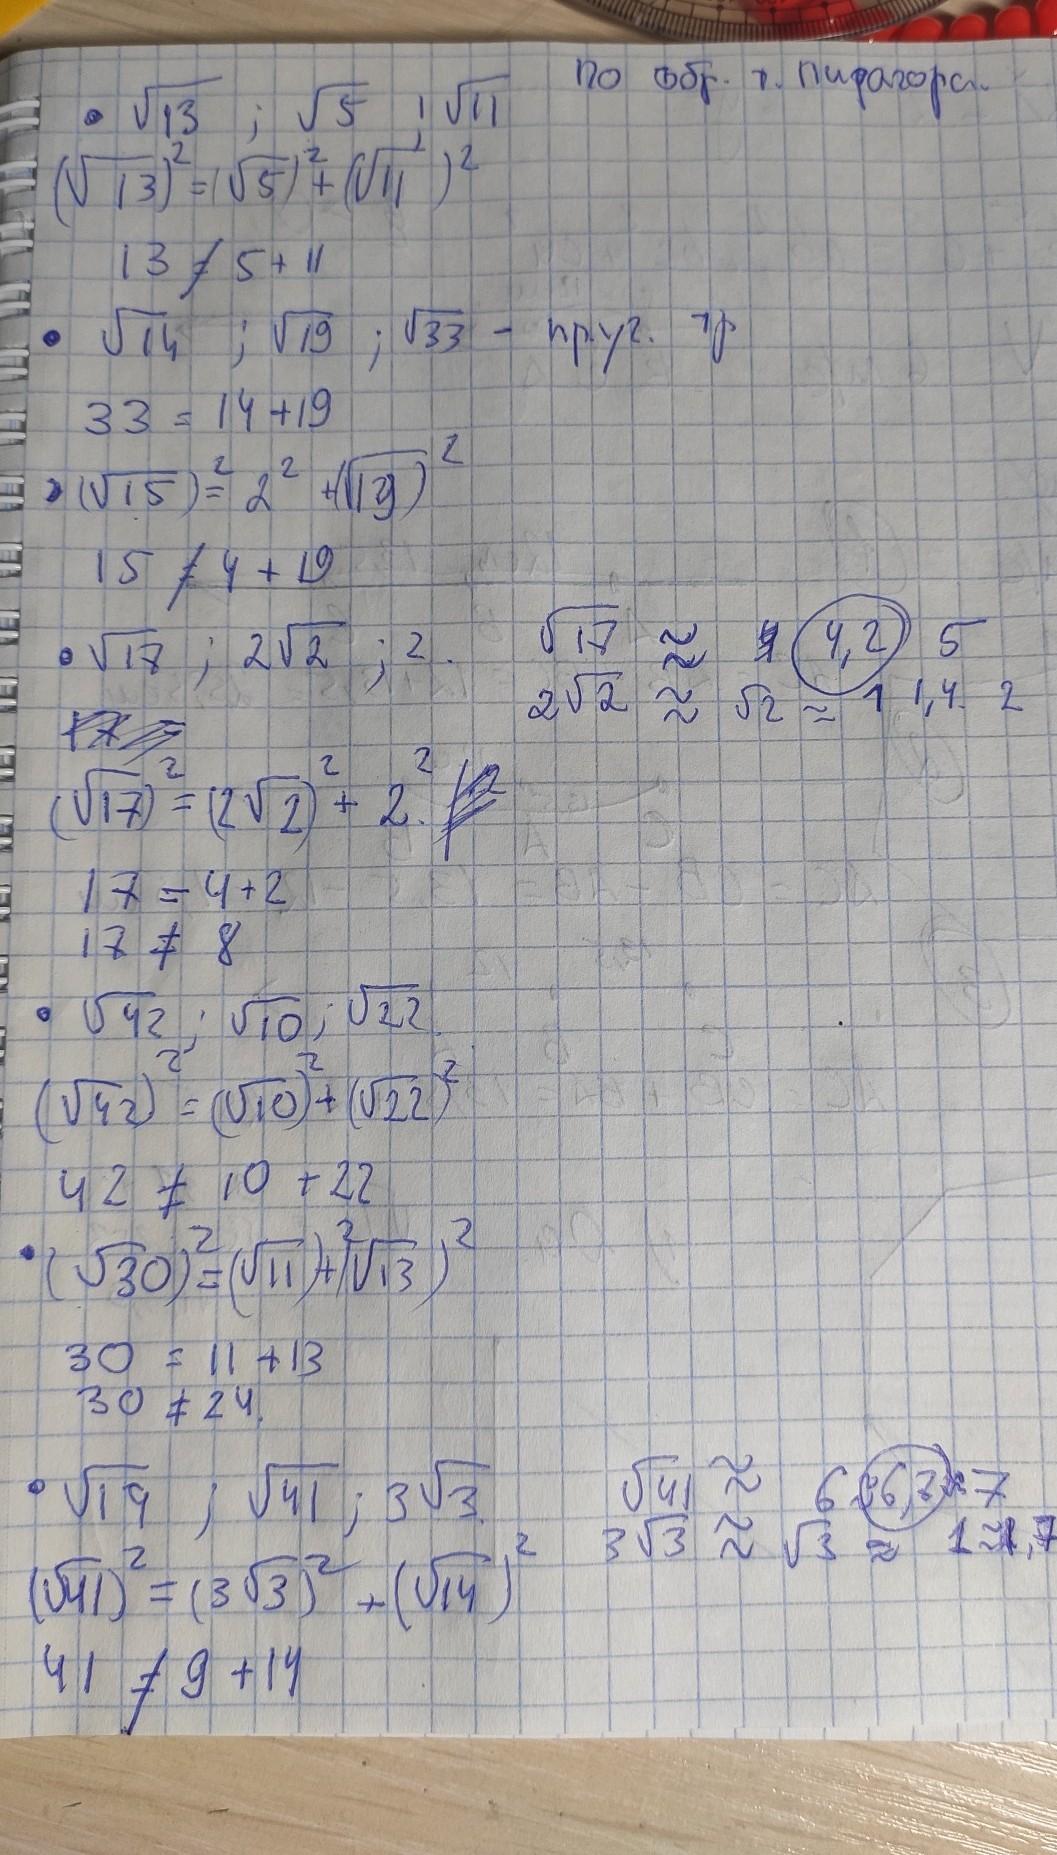 По обр. т. Пифагора.
• √13 ; √5 ; √11
(√13)² = (√5)² + (√11)²
13 ≠ 5 + 11
• √14 ; √19 ; √33 - пр.уг. тр
33 = 14 + 19
• (√15)² = 2² + (√19)²
15 ≠ 4 + 19
• √17 ; 2√2 ; 2.
√17 ≈ 4 4,2 5
2√2 ≈ √2 ≈ 1 1,4 2
(√17)² = (2√2)² + 2².
17 = 4 + 2
17 ≠ 8
• √42 ; √10 ; √22.
(√42)² = (√10)² + (√22)²
42 ≠ 10 + 22
• (√30)² = (√11)² + (√13)²
30 = 11 + 13
30 ≠ 24.
• √14 ; √41 ; 3√3.
√41 ≈ 6 7
3√3 ≈ √3 ≈ 1 1,7
(√41)² = (3√3)² + (√14)²
41 ≠ 9 + 14